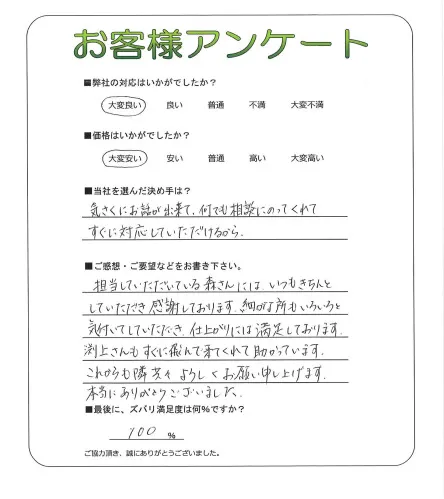 お客様アンケート
■弊社の対応はいかがでしたか？
大変良い 良い 普通 不満 大変不満
■価格はいかがでしたか？
大変安い 安い 普通 高い 大変高い
■当社を選んだ決め手は？
気さくにお話が出来て、何でも相談にのってくれて
すぐに対応していただけるから。
■ご感想・ご要望などをお書き下さい。
担当していただいている森さんには、いつもきちんと
していただき感謝しております。細かな所もいろいろと
気付いてしていただき、仕上がりには満足しております。
渕上さんもすぐに飛んで来てくれて助かっています。
これからも隣共々よろしくお願い申し上げます。
本当にありがとうございました。
■最後に、ズバリ満足度は何%ですか？
100 %
ご協力頂き、誠にありがとうございました。